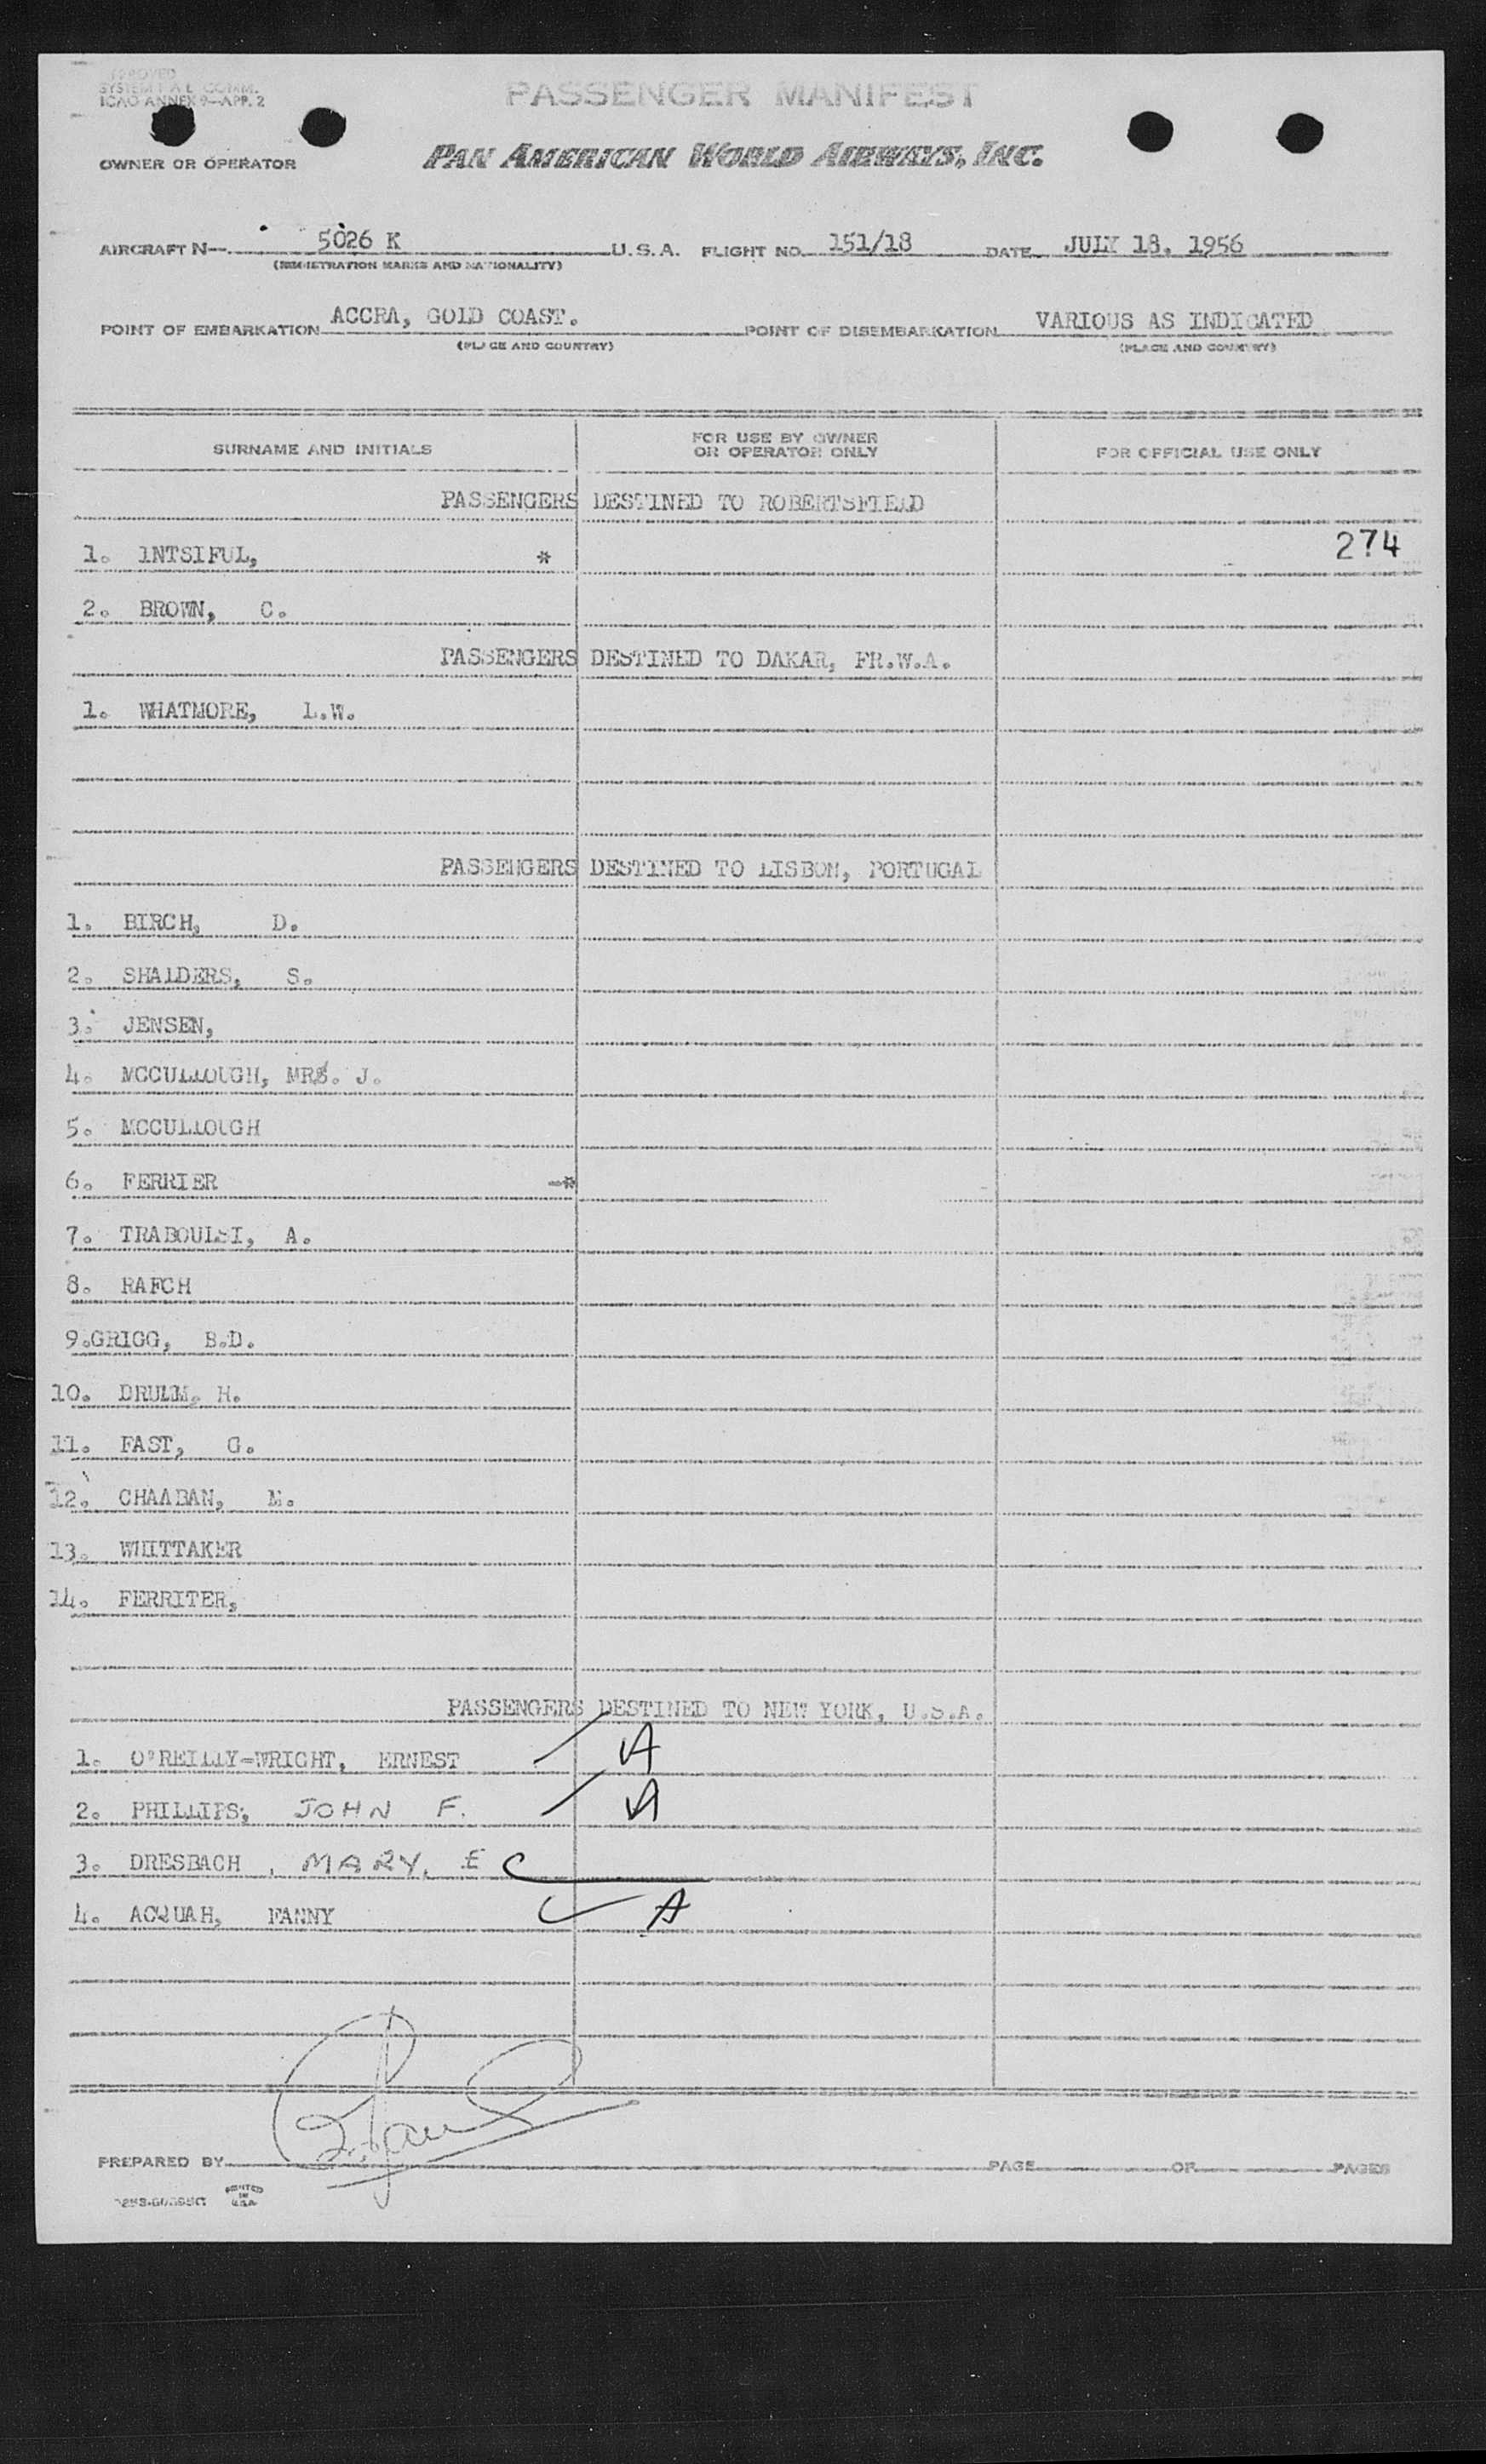 SYSTEM F A L COMM.
ICAO ANNEX 9—APP. 2
PASSENGER MANIFEST
OWNER OR OPERATOR PAN AMERICAN WORLD AIRWAYS, INC.
AIRCRAFT N— 5026 K U.S.A. FLIGHT NO. 151/18 DATE JULY 18, 1956
(REGISTRATION MARKS AND NATIONALITY)
POINT OF EMBARKATION ACCRA, GOLD COAST. POINT OF DISEMBARKATION VARIOUS AS INDICATED
(PLACE AND COUNTRY) (PLACE AND COUNTRY)
SURNAME AND INITIALS FOR USE BY OWNER OR OPERATOR ONLY FOR OFFICIAL USE ONLY
PASSENGERS DESTINED TO ROBERTSFIELD
1. INTSIFUL, * 274
2. BROWN, C.
PASSENGERS DESTINED TO DAKAR, FR.W.A.
1. WHATMORE, L.W.
PASSENGERS DESTINED TO LISBON, PORTUGAL
1. BIRCH, D.
2. SHALDERS, S.
3. JENSEN,
4. MCCULLOUGH, MRS. J.
5. MCCULLOUGH
6. FERRIER -*
7. TRABOULSI, A.
8. RAFCH
9.GRIGG, B.D.
10. DRUMM, H.
11. FAST, G.
12. CHAABAN, M.
13. WHITTAKER
14. FERRITER,
PASSENGERS DESTINED TO NEW YORK, U.S.A.
1. O'REILLY-WRIGHT, ERNEST A
2. PHILLIPS, JOHN F. A
3. DRESBACH, MARY, E C
4. ACQUAH, FANNY A
PREPARED BY PAGE OF PAGES
PRINTED IN U.S.A.